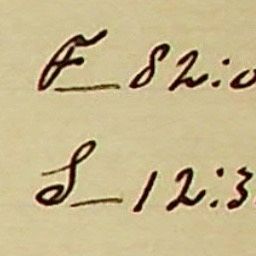 F_82:0
S_12:3